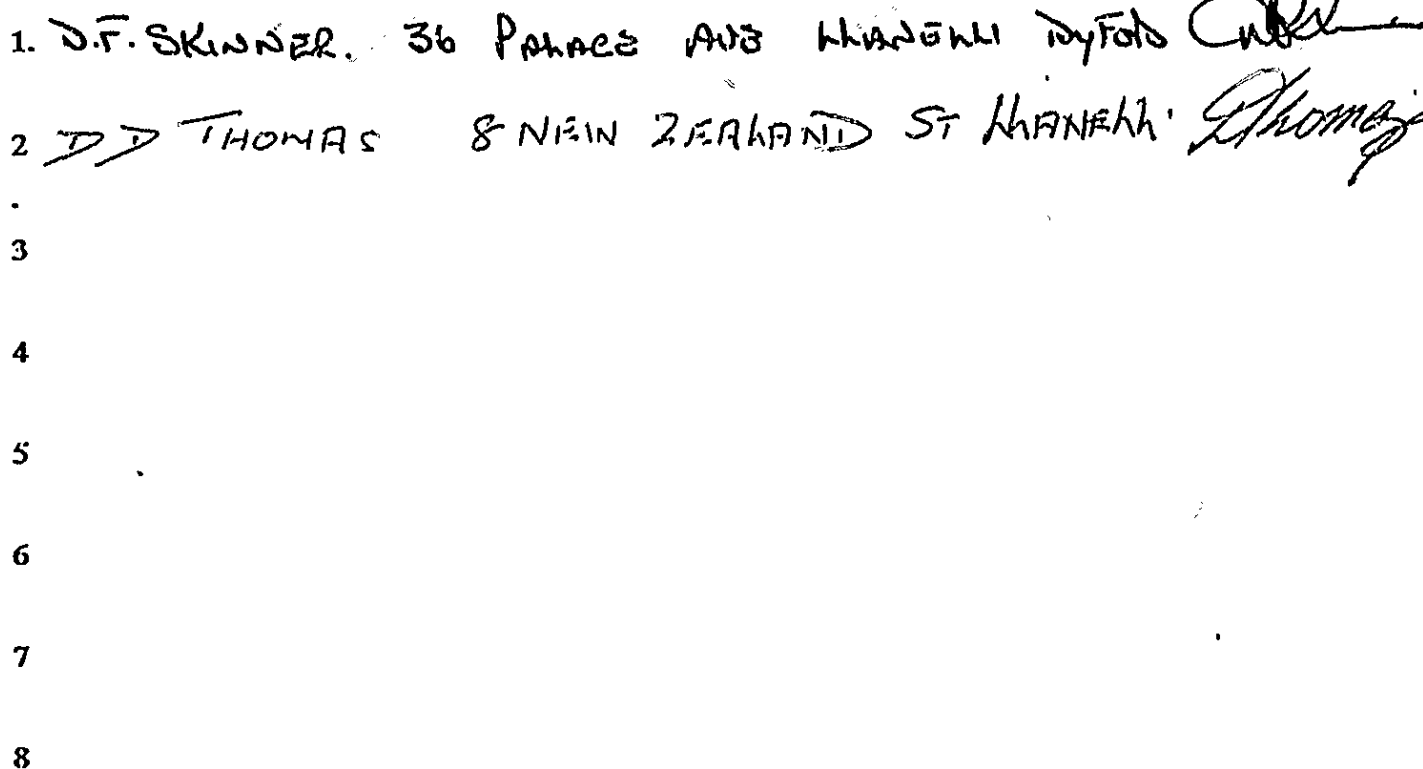 1. D.F. SKINNER. 36 PALACE AVE LLANELLI DYFED
2 D D THOMAS 8 NEW ZEALAND ST LLANELLI. DThomas
.
3
4
5
6
7
8